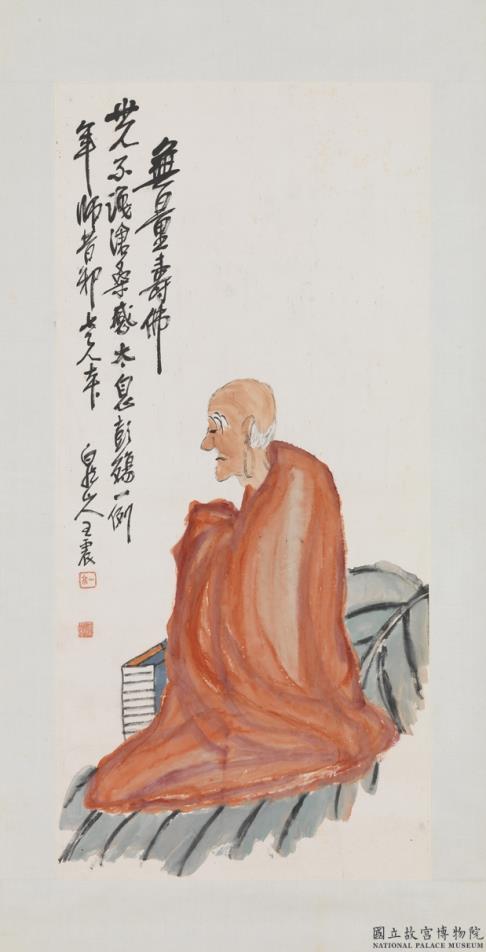 無量壽佛
不識滄桑感太息彭殤一例
年師昔
白龍山人王震
國立故宮博物院
NATIONAL PALACE MUSEUM